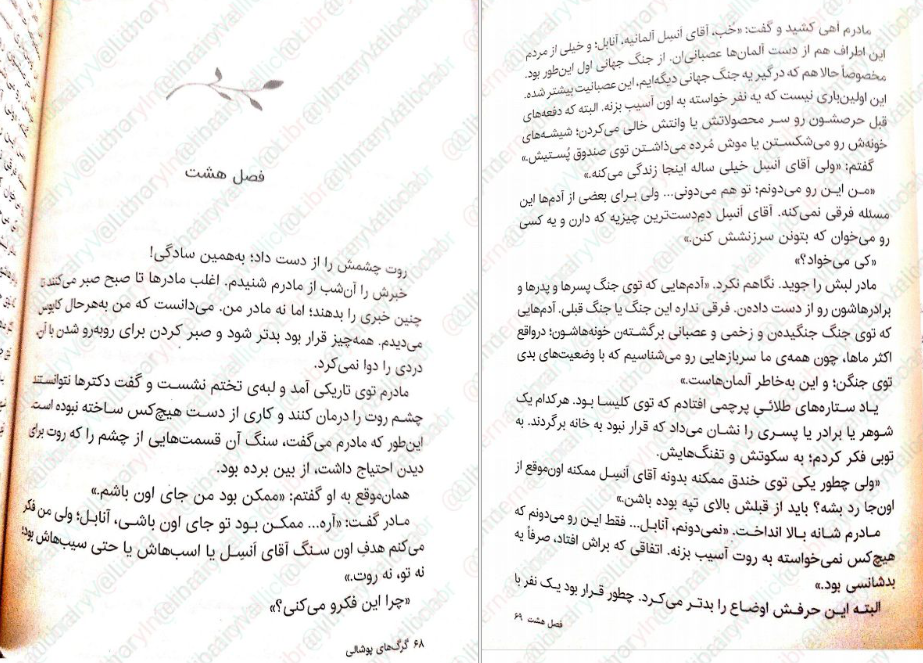 فصل هشت
روت چشمش را از دست داد؛ به‌همین سادگی!
خبرش را آن‌شب از مادرم شنیدم. اغلب مادرها تا صبح صبر می‌کنند تا
چنین خبری را بدهند؛ اما نه مادر من. می‌دانست که من به‌هرحال کابوس
می‌دیدم. همه‌چیز قرار بود بدتر شود و صبر کردن برای روبه‌رو شدن با آن،
دردی را دوا نمی‌کرد.
مادرم توی تاریکی آمد و لبه‌ی تختم نشست و گفت دکترها نتوانستند
چشم روت را درمان کنند و کاری از دست هیچ‌کس ساخته نبوده است.
این‌طور که مادرم می‌گفت، سنگ آن قسمت‌هایی از چشم را که روت برای
دیدن احتیاج داشت، از بین برده بود.
همان‌موقع به او گفتم: «ممکن بود من جای اون باشم.»
مادر گفت: «آره... ممکن بود تو جای اون باشی، آنابل؛ ولی من فکر
می‌کنم هدفِ اون سنگ آقای آنسِل یا اسب‌هاش یا حتی سیب‌هاش بود؛
نه تو، نه روت.»
«چرا این فکرو می‌کنی؟»
۶۸ گرگ‌های پوشالی
مادرم آهی کشید و گفت: «خُب، آقای آنسِل آلمانیه، آنابل؛ و خیلی از مردم
این اطراف هم از دست آلمان‌ها عصبانی‌ان. از جنگ جهانی اول این‌طور بود.
مخصوصاً حالا هم که درگیر یه جنگ جهانی دیگه‌ایم، این عصبانیت بیشتر شده.
این اولین‌باری نیست که یه نفر خواسته به اون آسیب بزنه. البته که دفعه‌های
قبل حرصشون رو سر محصولاتش یا وانتش خالی می‌کردن؛ شیشه‌های
خونه‌ش رو می‌شکستن یا موش مُرده می‌ذاشتن توی صندوق پُستیش.»
گفتم: «ولی آقای آنسِل خیلی ساله اینجا زندگی می‌کنه.»
«من این رو می‌دونم؛ تو هم می‌دونی... ولی برای بعضی از آدم‌ها این
مسئله فرقی نمی‌کنه. آقای آنسِل دم‌دست‌ترین چیزیه که دارن و یه کسی
رو می‌خوان که بتونن سرزنشش کنن.»
«کی می‌خواد؟»
مادر لبش را جوید. نگاهم نکرد. «آدم‌هایی که توی جنگ پسرها و پدرها و
برادرهاشون رو از دست داده‌ن. فرقی نداره این جنگ یا جنگ قبلی. آدم‌هایی
که توی جنگ جنگیده‌ن و زخمی و عصبانی برگشته‌ن خونه‌هاشون؛ درواقع
اکثر ماها، چون همه‌ی ما سربازهایی رو می‌شناسیم که با وضعیت‌های بدی
توی جنگن؛ و این به‌خاطر آلمان‌هاست.»
یاد ستاره‌های طلائی پرچمی افتادم که توی کلیسا بود. هرکدام یک
شوهر یا برادر یا پسری را نشان می‌داد که قرار نبود به خانه برگردند. به
توبی فکر کردم؛ به سکوتش و تفنگ‌هایش.
«ولی چطور یکی توی خندق ممکنه بدونه آقای آنسِل ممکنه اون‌موقع از
اون‌جا رد بشه؟ باید از قبلش بالای تپه بوده باشن.»
مادرم شانه بالا انداخت. «نمی‌دونم، آنابل... فقط این رو می‌دونم که
هیچ‌کس نمی‌خواسته به روت آسیب بزنه. اتفاقی که براش افتاد، صرفاً یه
بدشانسی بود.»
البته این حرفش اوضاع را بدتر می‌کرد. چطور قرار بود یک نفر با
فصل هشت ۶۹